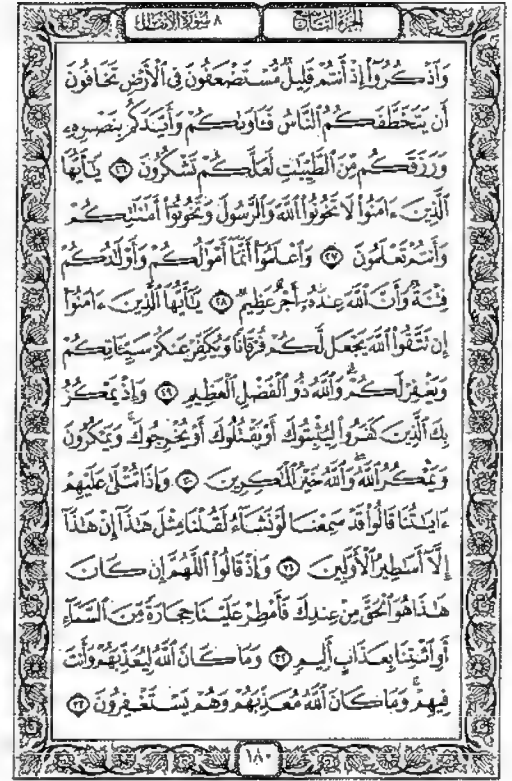 الجزء التاسع
٨ سورة الأنفال
وَٱذْكُرُوٓا۟ إِذْ أَنتُمْ قَلِيلٌ مُّسْتَضْعَفُونَ فِى ٱلْأَرْضِ تَخَافُونَ
أَن يَتَخَطَّفَكُمُ ٱلنَّاسُ فَـَٔاوَىٰكُمْ وَأَيَّدَكُم بِنَصْرِهِۦ
وَرَزَقَكُم مِّنَ ٱلطَّيِّبَـٰتِ لَعَلَّكُمْ تَشْكُرُونَ ٢٦ يَـٰٓأَيُّهَا
ٱلَّذِينَ ءَامَنُوا۟ لَا تَخُونُوا۟ ٱللَّهَ وَٱلرَّسُولَ وَتَخُونُوٓا۟ أَمَـٰنَـٰتِكُمْ
وَأَنتُمْ تَعْلَمُونَ ٢٧ وَٱعْلَمُوٓا۟ أَنَّمَآ أَمْوَٰلُكُمْ وَأَوْلَـٰدُكُمْ
فِتْنَةٌ وَأَنَّ ٱللَّهَ عِندَهُۥٓ أَجْرٌ عَظِيمٌ ٢٨ يَـٰٓأَيُّهَا ٱلَّذِينَ ءَامَنُوٓا۟
إِن تَتَّقُوا۟ ٱللَّهَ يَجْعَل لَّكُمْ فُرْقَانًا وَيُكَفِّرْ عَنكُمْ سَيِّـَٔاتِكُمْ
وَيَغْفِرْ لَكُمْ ۗ وَٱللَّهُ ذُو ٱلْفَضْلِ ٱلْعَظِيمِ ٢٩ وَإِذْ يَمْكُرُ
بِكَ ٱلَّذِينَ كَفَرُوا۟ لِيُثْبِتُوكَ أَوْ يَقْتُلُوكَ أَوْ يُخْرِجُوكَ ۚ وَيَمْكُرُونَ
وَيَمْكُرُ ٱللَّهُ ۖ وَٱللَّهُ خَيْرُ ٱلْمَـٰكِرِينَ ٣٠ وَإِذَا تُتْلَىٰ عَلَيْهِمْ
ءَايَـٰتُنَا قَالُوا۟ قَدْ سَمِعْنَا لَوْ نَشَآءُ لَقُلْنَا مِثْلَ هَـٰذَآ ۙ إِنْ هَـٰذَآ
إِلَّآ أَسَـٰطِيرُ ٱلْأَوَّلِينَ ٣١ وَإِذْ قَالُوا۟ ٱللَّهُمَّ إِن كَانَ
هَـٰذَا هُوَ ٱلْحَقَّ مِنْ عِندِكَ فَأَمْطِرْ عَلَيْنَا حِجَارَةً مِّنَ ٱلسَّمَآءِ
أَوِ ٱئْتِنَا بِعَذَابٍ أَلِيمٍ ٣٢ وَمَا كَانَ ٱللَّهُ لِيُعَذِّبَهُمْ وَأَنتَ
فِيهِمْ ۚ وَمَا كَانَ ٱللَّهُ مُعَذِّبَهُمْ وَهُمْ يَسْتَغْفِرُونَ ٣٣
١٨٠